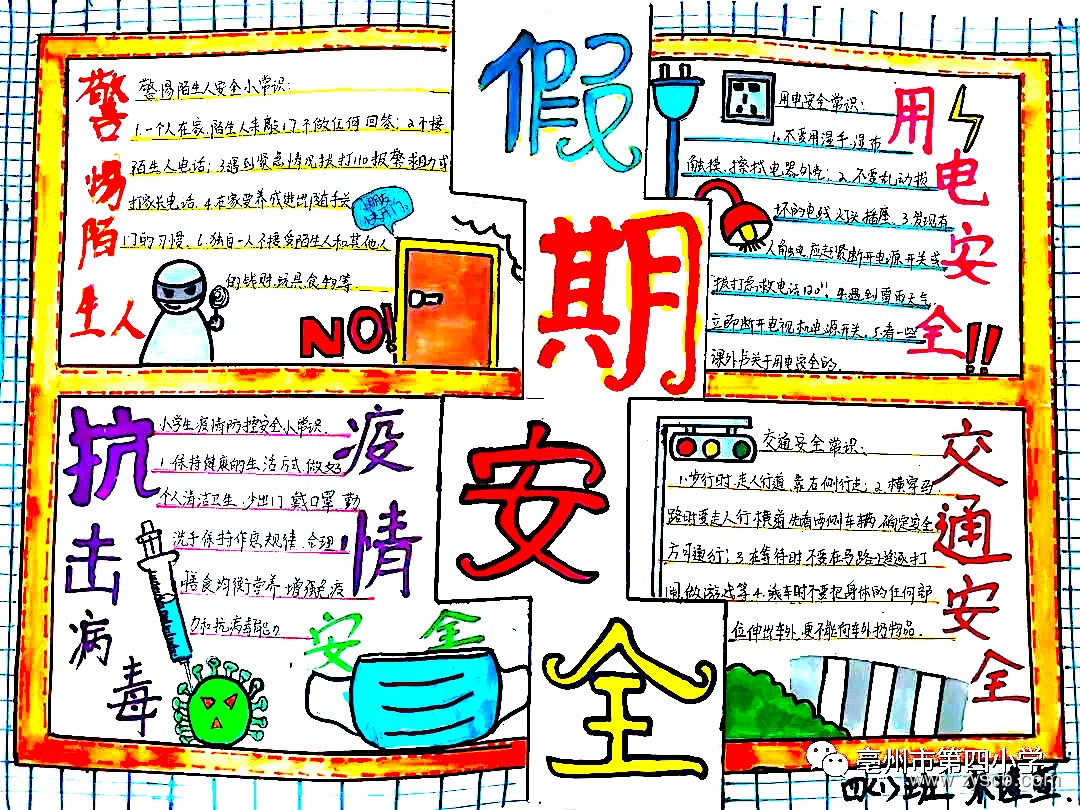 假期安全
警惕陌生人
警惕陌生人安全小常识：
1.一个人在家,陌生人来敲门不做任何回答；2.不接
陌生人电话；3.遇到紧急情况拨打110报警求助或
打家长电话；4.在家要养成进出随手关
门的习惯、6.独自一人不接受陌生人和其他人
的钱财玩具食物等.
NO!
用电安全!!
用电安全常识：
1.不要用湿手,湿布
触摸、擦拭电器外壳；2.不要乱动损
坏的电线、灯头插座、3.发现有
人触电,应赶紧断开电源开关或
拨打急救电话120！4.遇到雷雨天气.
立即断开电视机电源开关、5.看一些
课外书关于用电安全的.
抗击病毒
疫情安全
小学生疫情防控安全小常识.
1.保持健康的生活方式,做好
个人清洁卫生,少出门,戴口罩,勤
洗手保持作息规律,合理
膳食均衡营养,增强免疫
力和抗病毒能力
交通安全
交通安全常识：
1.步行时,走人行道,靠右侧行走；2.横穿马
路时要走人行横道,先看两侧车辆,确定安全
方可通行；3.在等待时不要在马路上追逐打
闹,做游戏等.4.乘车时不要把身体的任何部
位伸出车外,更不能向车外扔物品.
亳州市第四小学
www.zysco.com
四(1)班